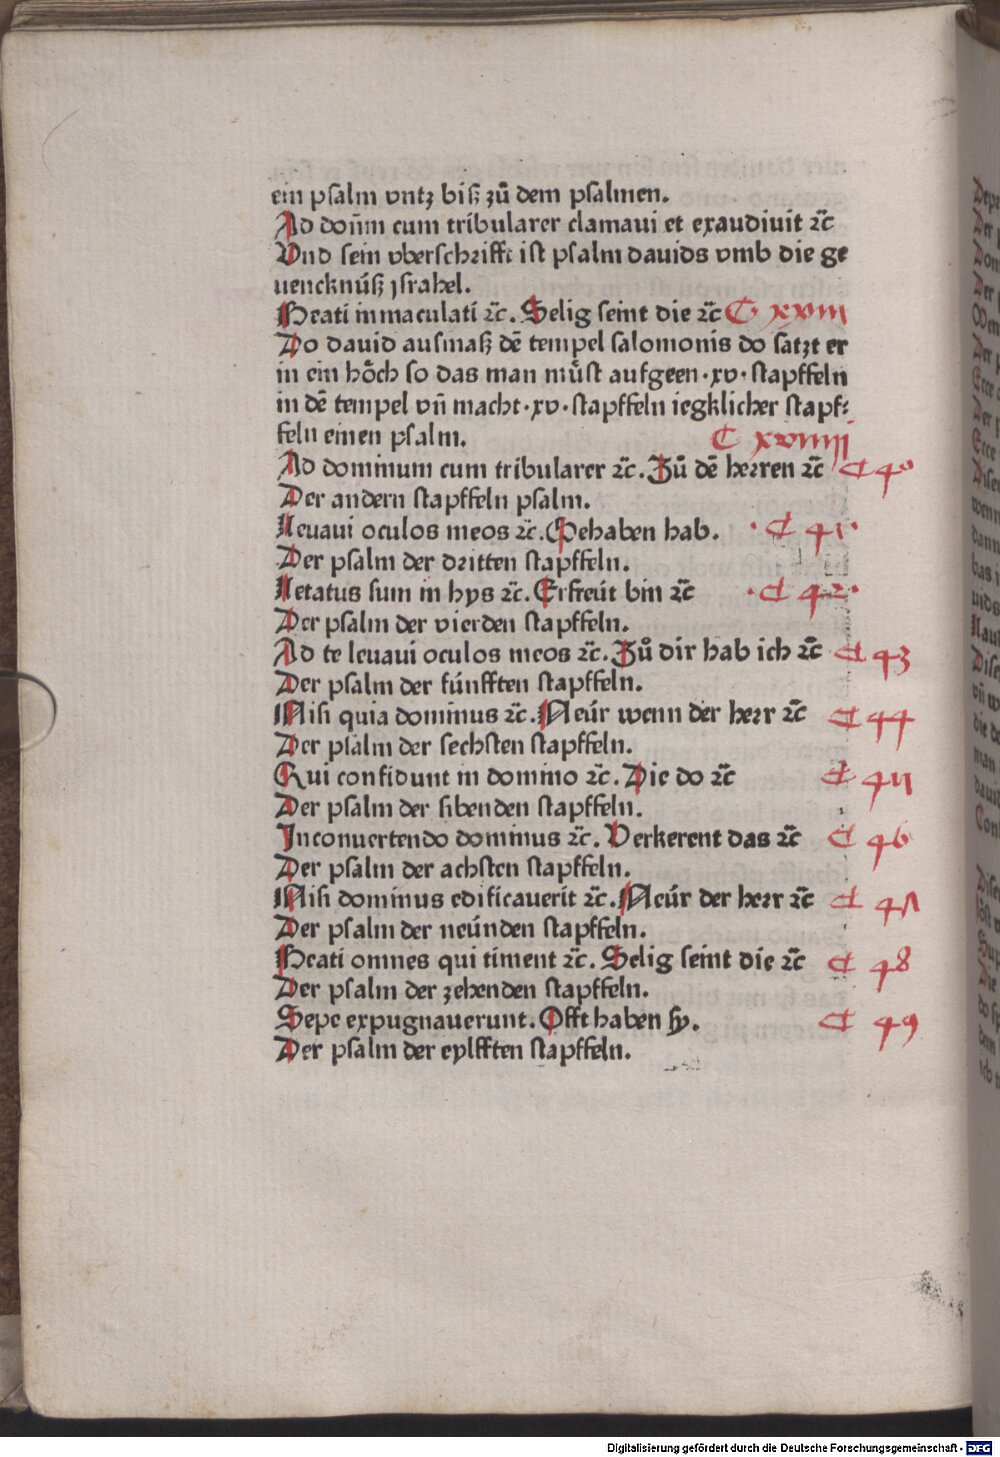 ein psalm vntz biſz zů dem psalmen.
Ad doñm cum tribularer clamaui et exaudiuit ⁊c̃
Vnd ſein vberſchrifft iſt pſalm dauids vmb die ge
uencknúſz jſrahel.
Beati inmaculati ⁊c̃. Selig ſeint die ⁊c̃ C xviii
Do dauid auſmaſz dẽ tempel ſalomonis do ſatzt er
in ein hoͤch ſo das man muͤſt aufgeen·xv·ſtapffeln
in dẽ tempel vñ macht·xv·ſtapffeln iegklicher ſtapf⸗
feln einen pſalm. C xviiij
Ad dominum cum tribularer ⁊c̃. Zů dẽ herren ⁊c̃ C 40
Der andern ſtapffeln pſalm.
Leuaui oculos meos ⁊c̃. Gehaben hab. · C 41·
Der pſalm der dritten ſtapffeln.
Letatus ſum in hys ⁊c̃. Erfreút bin ⁊c̃ · C 42·
Der pſalm der vierden ſtapffeln.
Ad te leuaui oculos meos ⁊c̃. Zů dir hab ich ⁊c̃ C 43
Der pſalm der fúnfften ſtapffeln.
Niſi quia dominus ⁊c̃. Neúr wenn der herr ⁊c̃ C 44
Der pſalm der ſechsten ſtapffeln.
Qui confidunt in domino ⁊c̃. Die do ⁊c̃ C 45
Der pſalm der ſibenden ſtapffeln.
Inconuertendo dominus ⁊c̃. Verkerent das ⁊c̃ C 46
Der pſalm der achſten ſtapffeln.
Niſi dominus edificauerit ⁊c̃. Neúr der herr ⁊c̃ C 47
Der pſalm der neúnden ſtapffeln.
Beati omnes qui timent ⁊c̃. Selig ſeint die ⁊c̃ C 48
Der pſalm der zehenden ſtapffeln.
Sepe expugnauerunt. Offt haben ſy. C 49
Der pſalm der eylfften ſtapffeln.
Digitalisierung gefördert durch die Deutsche Forschungsgemeinschaft - DFG